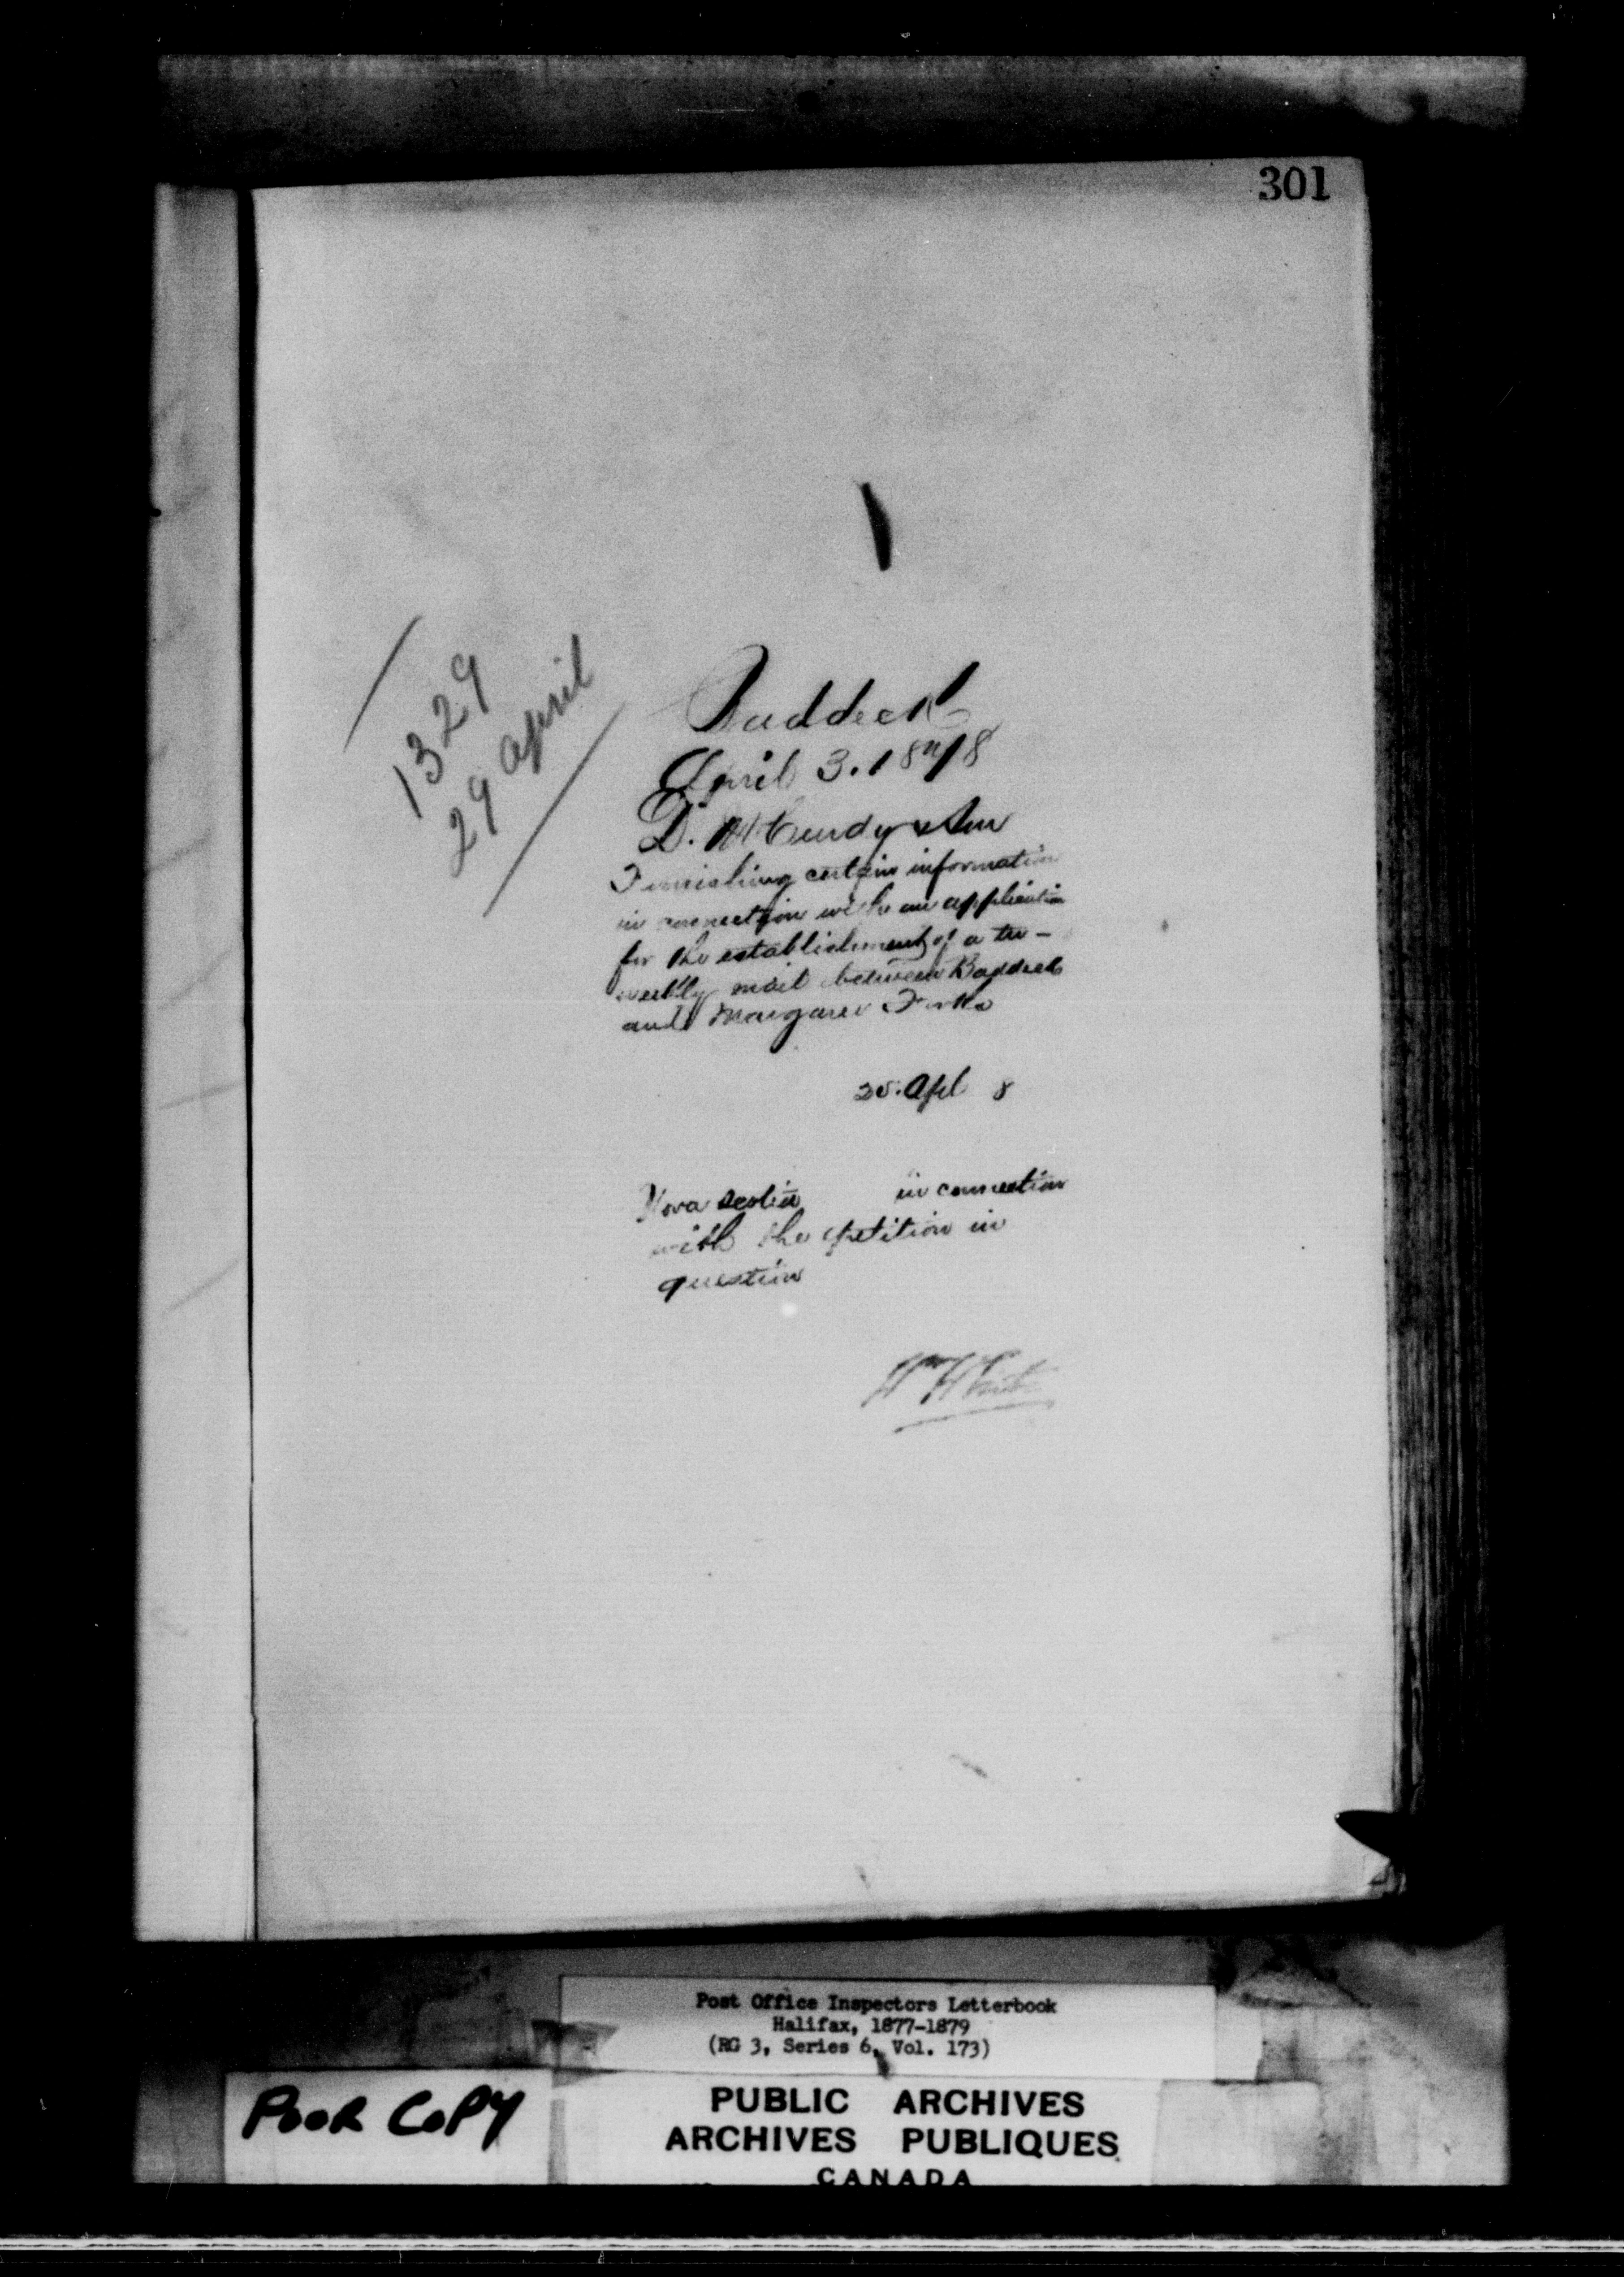 301
1329
29 April
Baddeck
April 3. 1878
D. McCurdy & Son
Furnishing certain information
in connection with an application
for the establishment of a tri-
weekly mail between Baddeck
and Margaree Forks
25. Apl 8
Nova Scotia in connection
with the petition in
question
Wm White
Post Office Inspectors Letterbook
Halifax, 1877-1879
(RG 3, Series 6, Vol. 173)
POOR COPY
PUBLIC ARCHIVES
ARCHIVES PUBLIQUES
CANADA